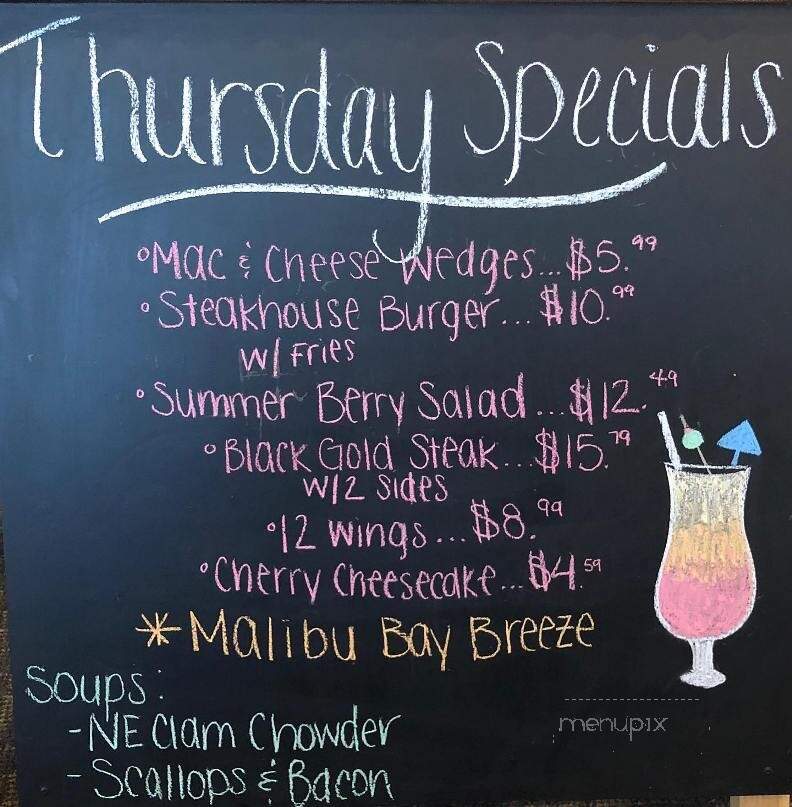 Thursday Specials
°Mac & Cheese Wedges...$5.99
°Steakhouse Burger...$10.99
w/ Fries
°Summer Berry Salad...$12.49
°Black Gold Steak...$15.79
w/2 sides
°12 wings...$8.99
°Cherry Cheesecake...$4.59
*Malibu Bay Breeze
Soups:
-NE Clam Chowder
-Scallops & Bacon
menupix